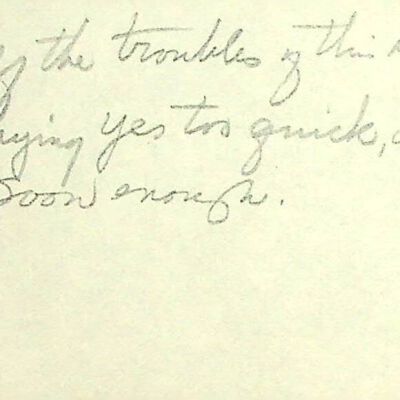 of the troubles of this
aying yes too quick,
soon enough.